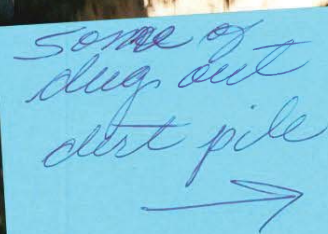 some of
dug out
dirt pile